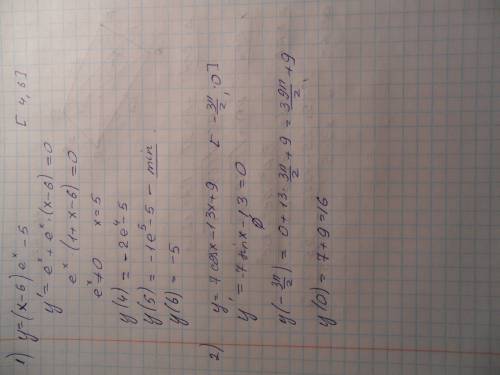 1) y=(x-6)eˣ-5 [4,6]
y'=eˣ+eˣ·(x-6)=0
eˣ(1+x-6)=0
eˣ≠0 x=5
y(4)=-2e⁴-5
y(5)=-1e⁵-5 - min.
y(6)=-5
2) y=7cosx-13x+9 [-3π/2; 0]
y'=-7sinx-13=0
y(-3π/2)=0+13·3π/2+9=39π/2+9
y(0)=7+9=16